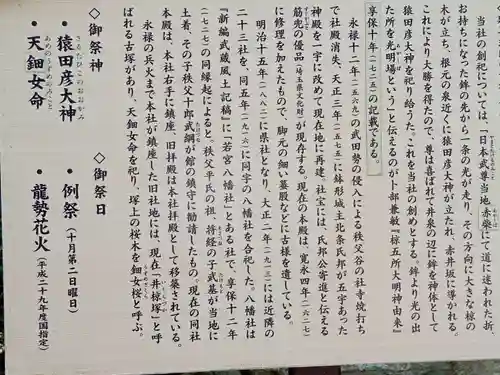 当社の創祀については、『日本武尊当地赤柴にて道に迷われた折、
お持ちになった鉾の先から一条の光が走り、その方向に大きな椋の
木が立ち、根元の泉近くに猿田彦大神が立たれ、赤井坂に導かれる。
これにより大勝を得たので、尊は喜ばせ井泉の辺に鉾を神体として
猿田彦大神を祀り給うた。これを当社の創めとする。鉾より光の出
た所を光明場という』と伝えるのが卜部兼敏『椋五所大明神由来』
享保十年(一七二五)の記載である。
永禄十二年(一五六九)の武田勢の侵入による秩父谷の社寺焼打ち
で社殿消失、天正三年(一五七五)に鉢形城主北条氏邦が五宇あった
神殿を一宇に改めて現在地に再建、社宝には、氏邦公寄進と伝える
筋兜の優品(埼玉県文化財)が現存する。現在の本殿は、寛永四年(一六二七)
に修理を加えたもので、脚元の細い蟇股などに古様を遺している。
明治十五年(一八八二)に県社となり、大正二年(一九一三)には近隣の
二十三社を、同五年(一九一六)に同字の八幡社を合祀した。八幡社は
『新編武蔵風土記稿』に「若宮八幡社」とある社で、享保十二年
(一七二七)の同縁起によると、秩父平氏の祖、将経の子武基が当地に
土着、その子秩父十郎武綱が館の鎮守に勧請したもの。現在の同社
本殿は、本社右手に鎮座、旧拝殿は本社拝殿として移築されている。
永禄の兵火まで本社が鎮座した旧社地には、現在「井椋塚」と呼
ばれる古塚があり、天鈿女命を祀り、塚上の桜木を鈿女桜と呼ぶ。
◇御祭神
・猿田彦大神
・天鈿女命
◇御祭日
・例祭(十月第二日曜日)
・龍勢花火(平成二十九年度国指定)